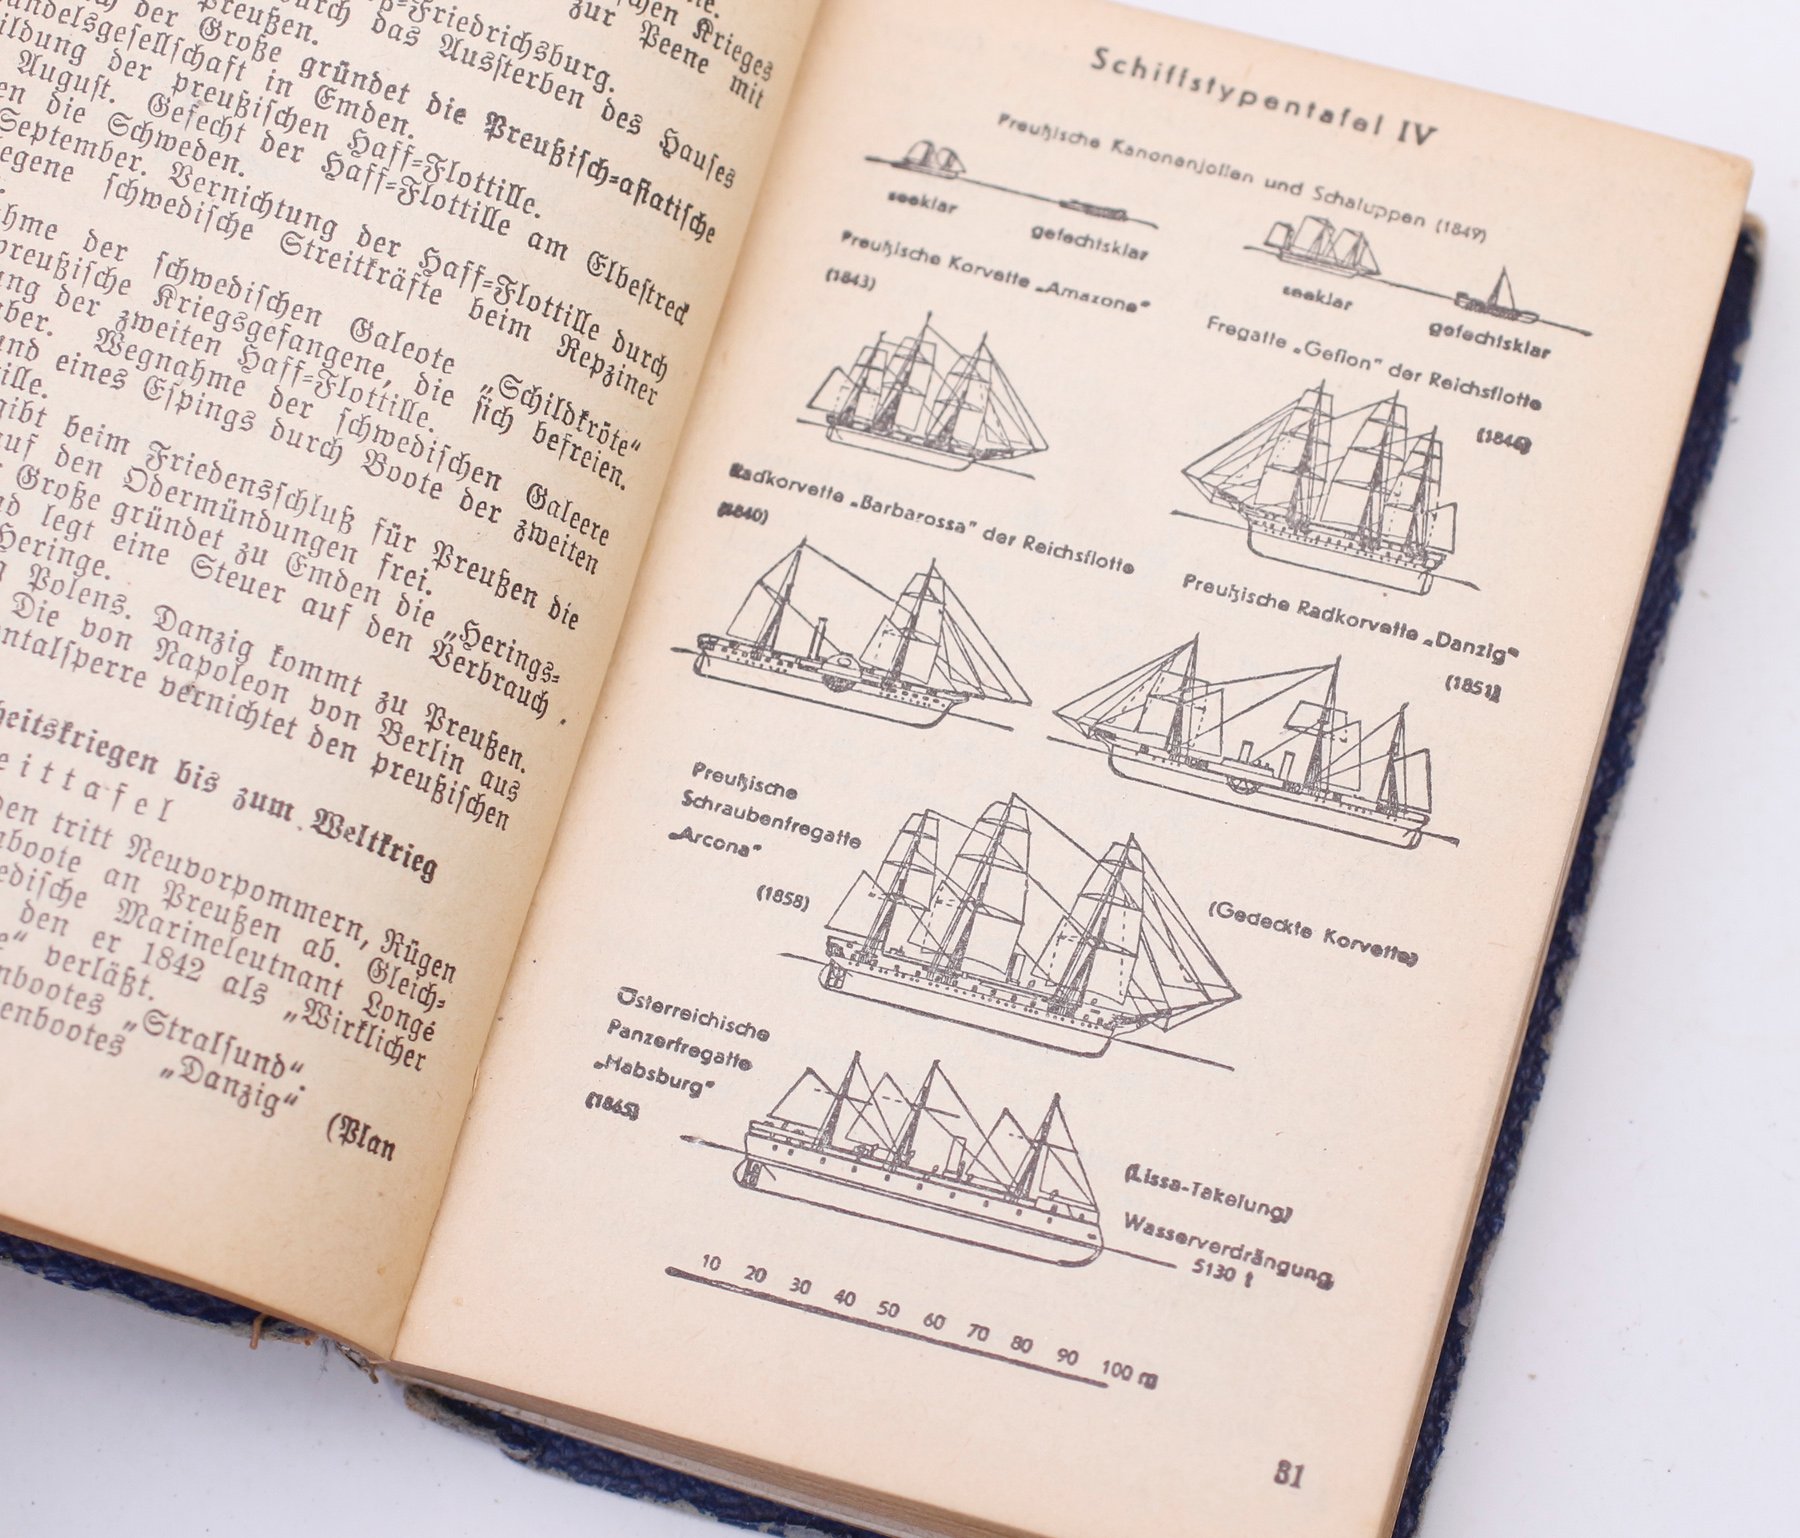 zur Peene mit
p=Friedrichsburg.
durch das Aussterben des Hauses
Preußen.
der Große gründet die Preußisch=asiatische
andelsgesellschaft in Emden.
ildung der preußischen Haff=Flottille.
August. Gefecht der Haff=Flottille am Elbestreck
en die Schweden.
September. Vernichtung der Haff=Flottille durch
egene schwedische Streitkräfte beim Repziner
hme der schwedischen Galeote „Schildkröte“
preußische Kriegsgefangene, die sich befreien.
ung der zweiten Haff=Flottille.
ber. Wegnahme der schwedischen Galeere
und eines Espings durch Boote der zweiten
ille.
gibt beim Friedensschluß für Preußen die
auf den Odermündungen frei.
Große gründet zu Emden die „Herings=
nd legt eine Steuer auf den Verbrauch
Heringe.
g Polens. Danzig kommt zu Preußen.
Die von Napoleon von Berlin aus
ntalsperre vernichtet den preußischen
heitskriegen bis zum Weltkrieg
eittafel
den tritt Neuvorpommern, Rügen
nboote an Preußen ab. Gleich=
edische Marineleutnant Longé
den er 1842 als „Wirklicher
e“ verläßt.
nbootes „Stralsund“.
enbootes „Danzig“ (Plan
Schiffstypentafel IV
Preußische Kanonenjollen und Schaluppen (1849)
seeklar
gefechtsklar
seeklar
gefechtsklar
Preußische Korvette „Amazone“
(1843)
Fregatte „Gefion“ der Reichsflotte
Radkorvette „Barbarossa“ der Reichsflotte
(1840)
Preußische Radkorvette „Danzig“
(1851)
Preußische
Schraubenfregatte
„Arcona“
(1858)
(Gedeckte Korvette)
Österreichische
Panzerfregatte
„Habsburg“
(1865)
(Lissa-Takelung)
Wasserverdrängung
5130 t
10 20 30 40 50 60 70 80 90 100 m
31